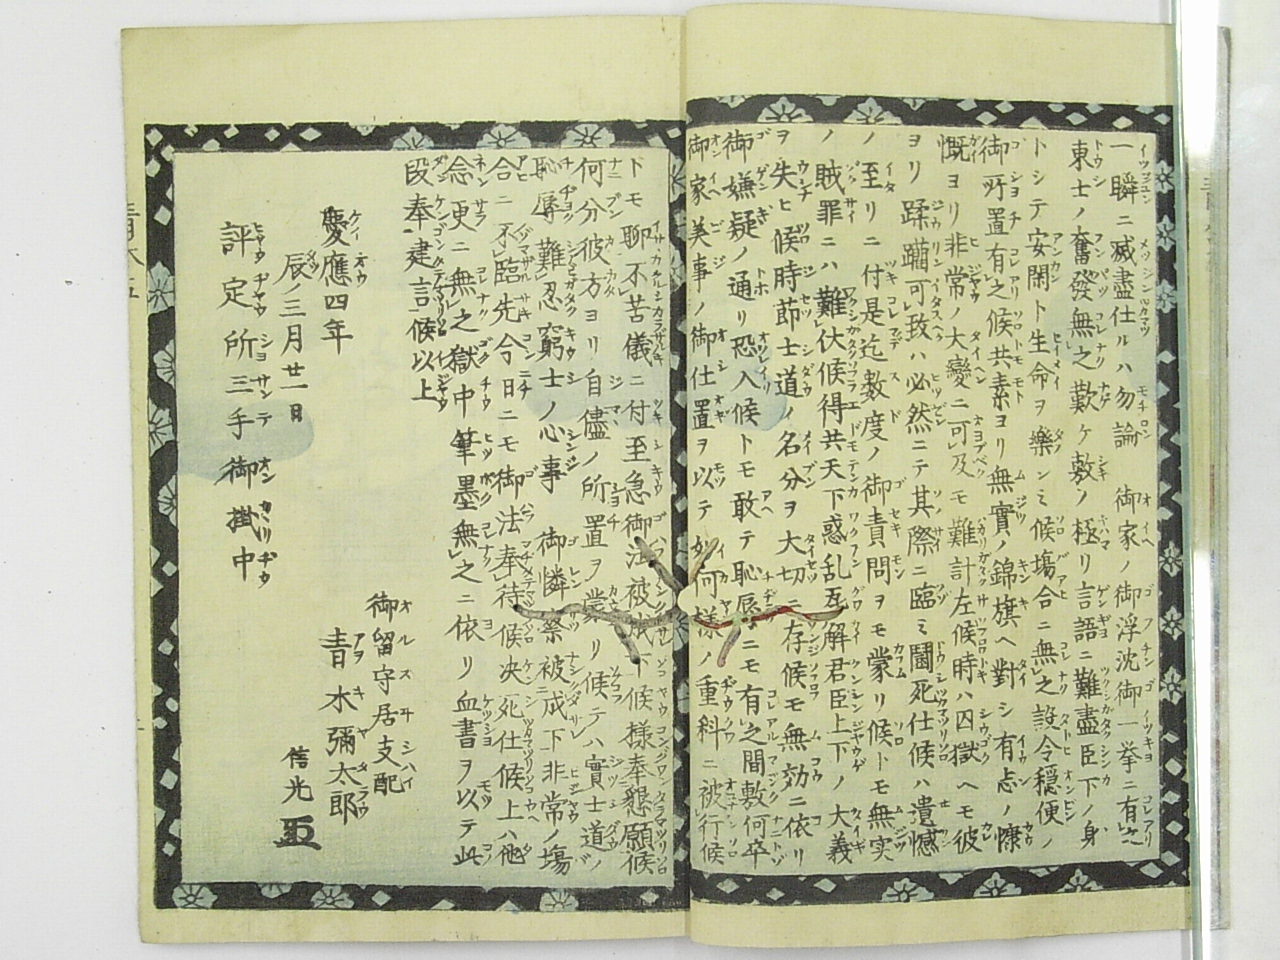 一瞬ニ滅盡仕ルハ勿論　御家ノ御浮沈御一挙ニ有之
東士ノ奮發無之歎ケ敷ノ極リ言語ニ難盡臣下ノ身
トシテ安閑ト生命ヲ樂シミ候塲合ニ無之設令穏便ノ
御所置有之候共素ヨリ無實ノ錦旗ヘ對シ有志ノ慷
慨ヨリ非常ノ大變ニ可及モ難計左候時ハ囚獄ヘモ彼
ヨリ蹂躪可致ハ必然ニテ其際ニ臨ミ鬪死仕候ハ遺憾
ノ至リニ付是迄数度ノ御責問ヲモ蒙リ候トモ無実
ノ賊罪ニハ難伏候得共天下惑乱瓦解君臣上下ノ大義
ヲ失ヒ候時節士道ノ名分ヲ大切ニ存候モ無効ニ依リ
御嫌疑ノ通リ恐入候トモ敢テ恥辱ニモ有之間敷何卒
御家美事ノ御仕置ヲ以テ如何様ノ重科ニ被行候
ドモ聊不苦儀ニ付至急御法被成下候様奉懇願候
何分彼方ヨリ自儘ノ所置ヲ蒙リ候テハ實士道ノ
恥辱難忍窮士ノ心事　御憐察被成下非常ノ塲
合ニ不臨先今日ニモ御法奉待候决死仕候上ハ他
念更ニ無之獄中筆墨無之ニ依リ血書ヲ以テ此
段奉建言候以上
慶應四年
辰ノ三月廿一日
御留守居支配
青木彌太郎
信光
評定所三手御掛中